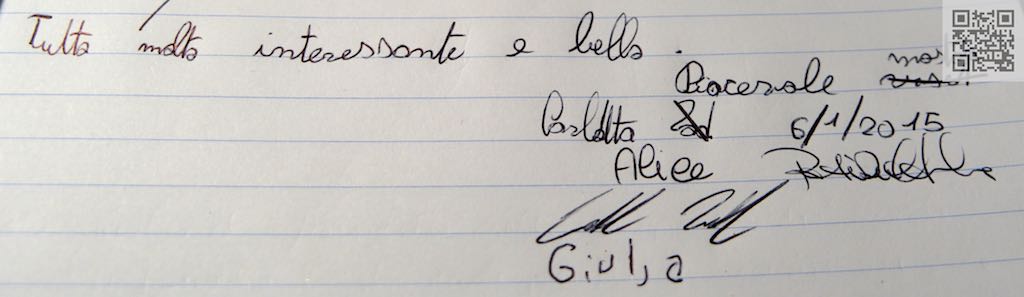 Tutto molto interessante e bello.
Piacevole
Carlotta 6/1/2015
Alice
Giulia